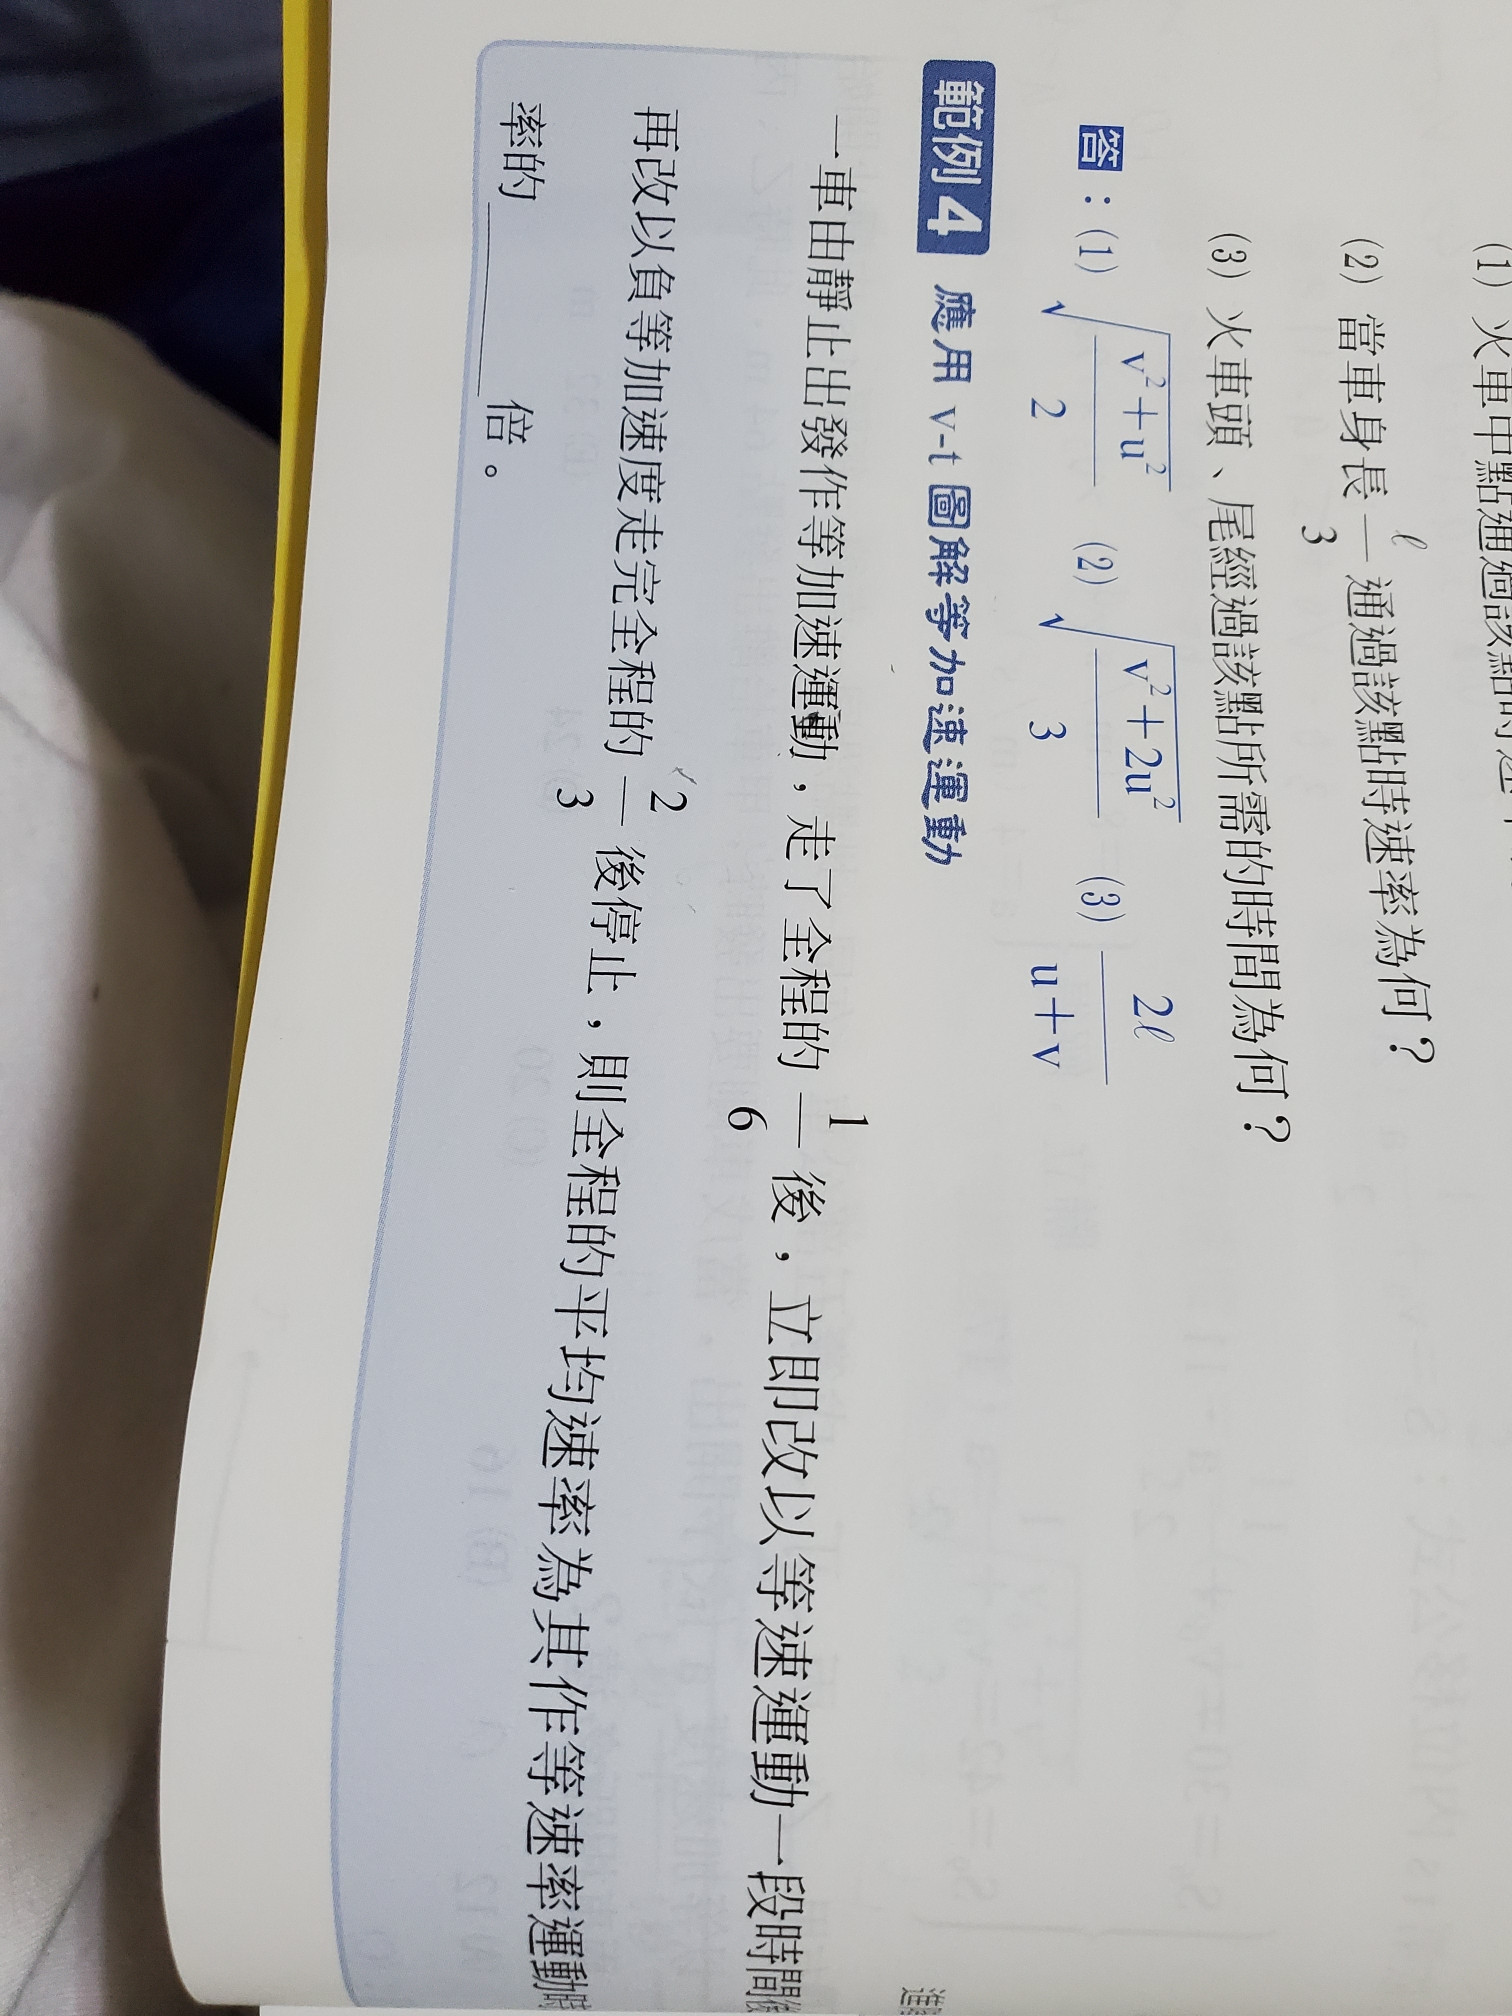 (1) 火車中點通過該點時速率
(2) 當車身長 ℓ/3 通過該點時速率為何？
(3) 火車頭、尾經過該點所需的時間為何？
答：(1) √((v²+u²)/2) (2) √((v²+2u²)/3) (3) 2ℓ/(u+v)
範例 4 應用 v-t 圖解等加速運動
一車由靜止出發作等加速運動，走了全程的 1/6 後，立即改以等速運動一段時間後
再改以負等加速度走完全程的 2/3 後停止，則全程的平均速率為其作等速率運動時
率的______倍。